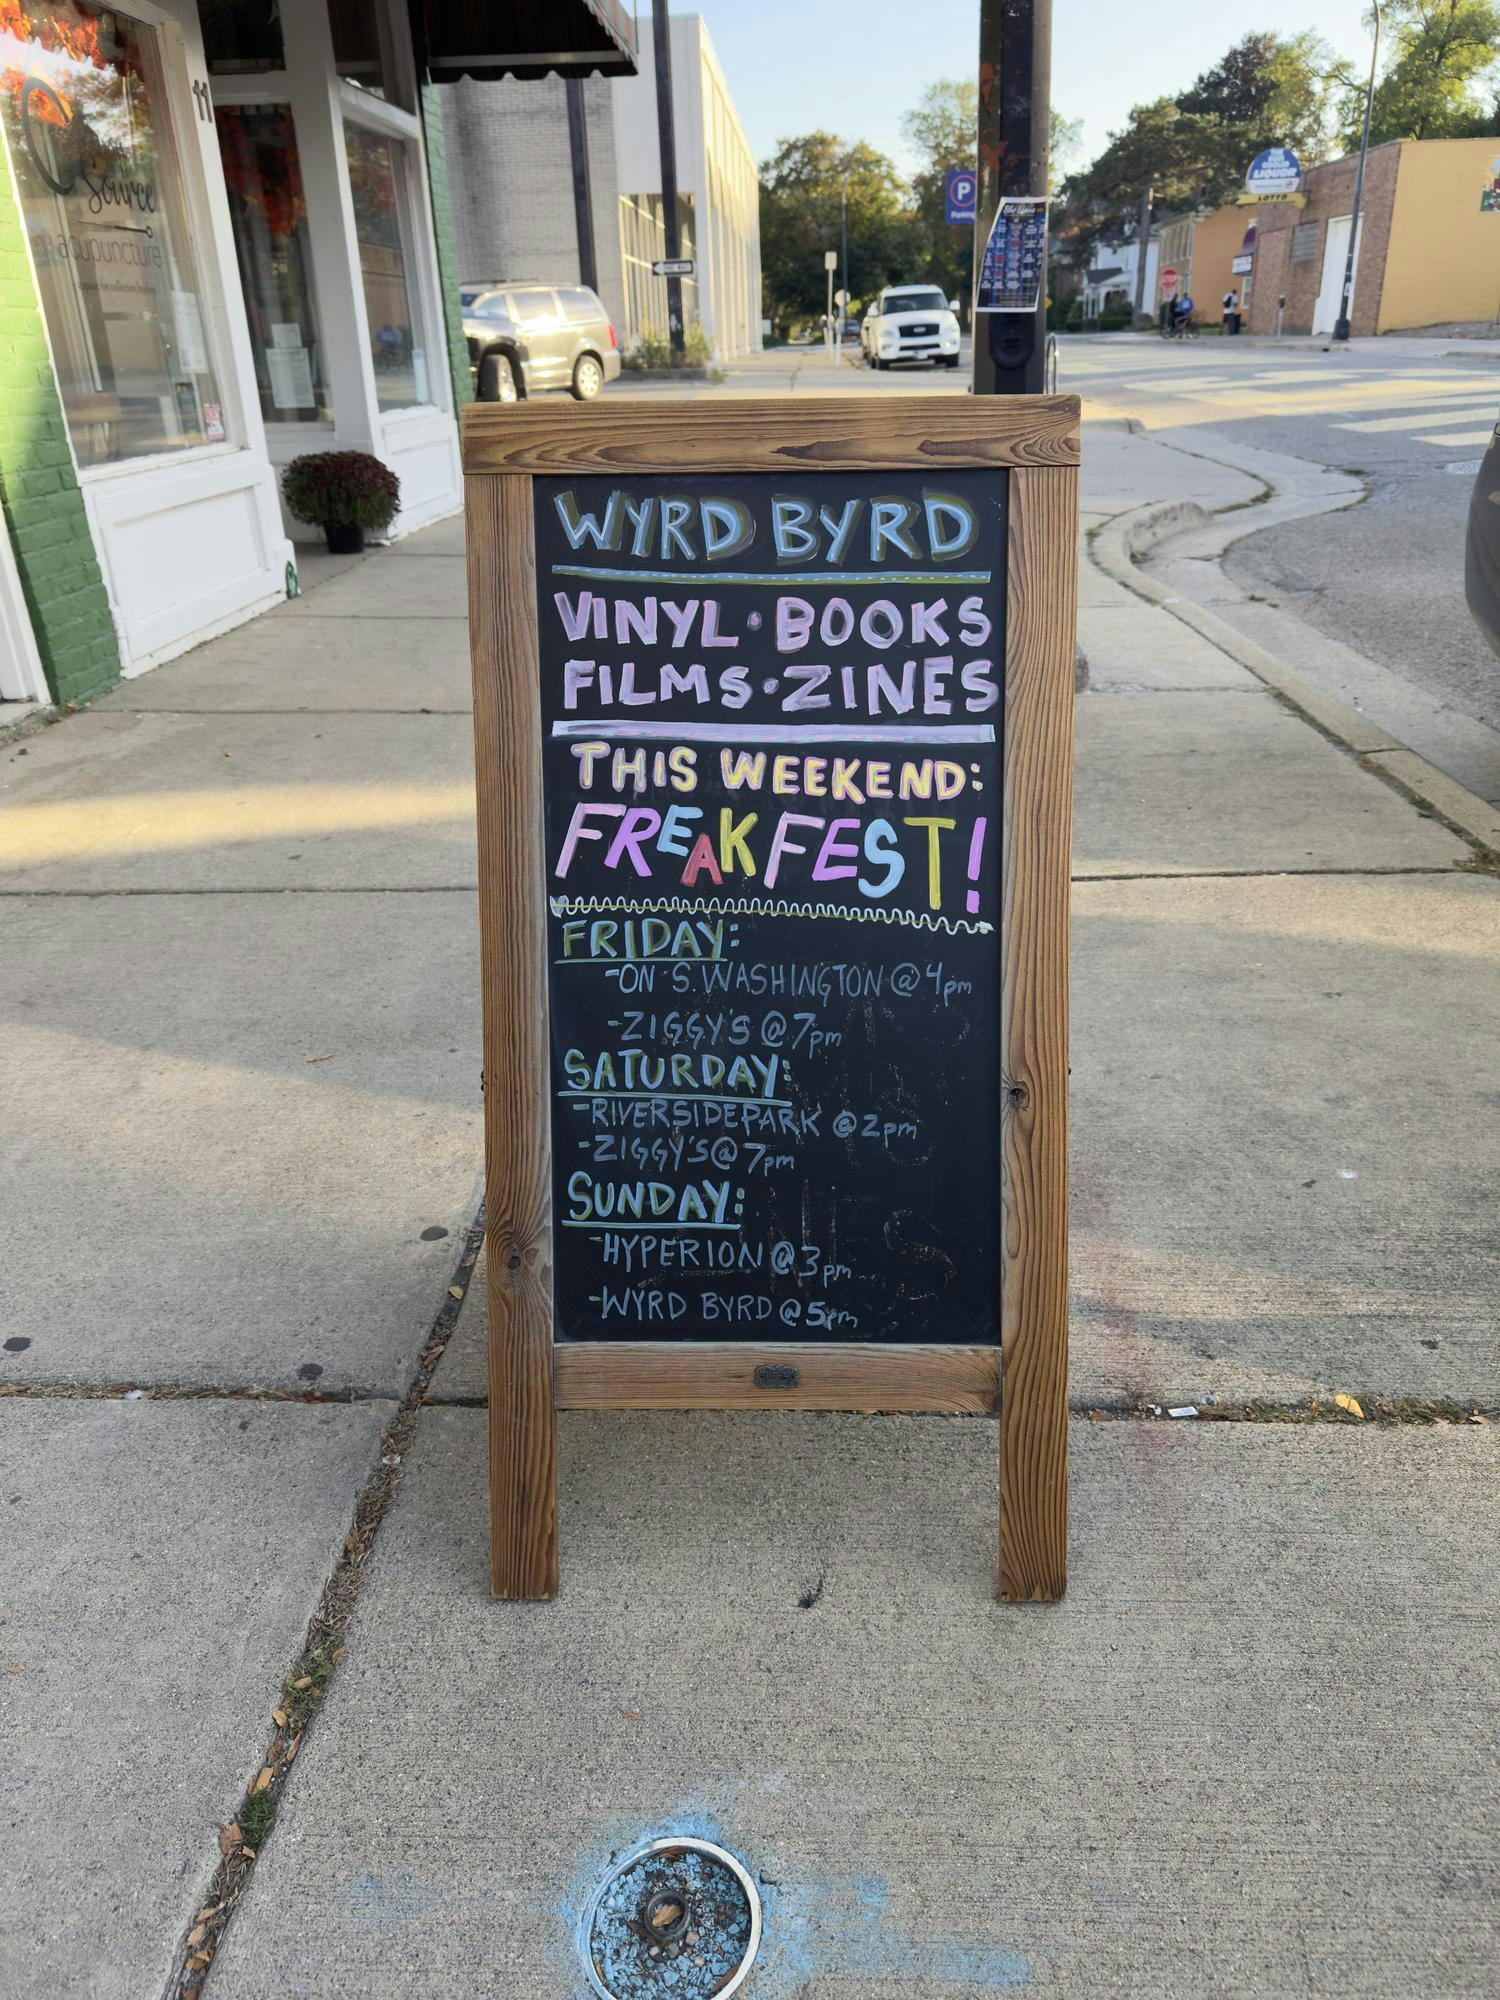 WYRD BYRD
VINYL · BOOKS
FILMS · ZINES
THIS WEEKEND:
FREAKFEST!
FRIDAY:
-ON S. WASHINGTON @ 4pm
-ZIGGY'S @ 7pm
SATURDAY:
-RIVERSIDE PARK @ 2pm
-ZIGGY'S @ 7pm
SUNDAY:
-HYPERION @ 3pm
-WYRD BYRD @ 5pm
11
Source
acupuncture
P
Parking
LIQUOR
LOTTO
STOP